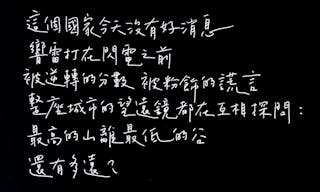 這個國家今天沒有好消息
響雷打在閃電之前
被逆轉的分數 被粉飾的謊言
整座城市的望遠鏡都在互相探問：
最高的山離最低的谷
還有多遠？